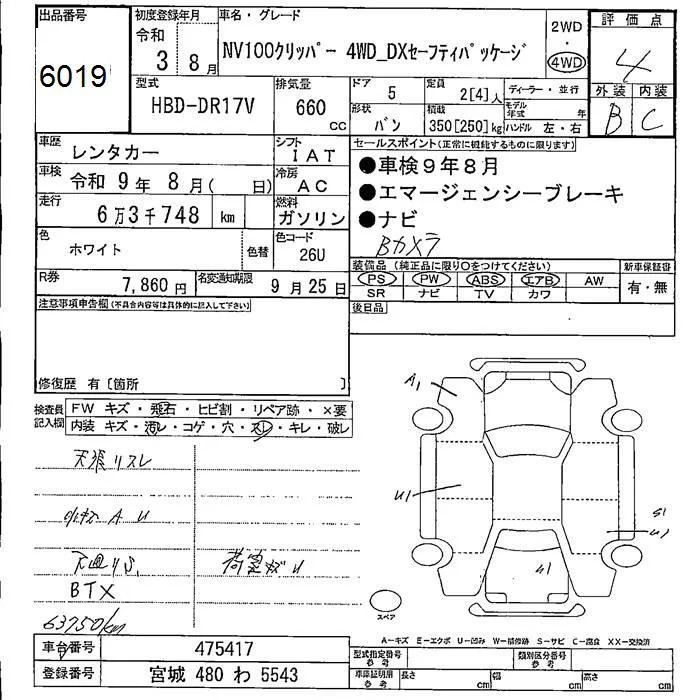 出品番号
6019
初度登録年月
令和
3年8月
車名・グレード
NV100クリッパー 4WD_DXセーフティパッケージ
2WD
・
4WD
評価点
4
外装 内装
B C
型式
HBD-DR17V
排気量
660
CC
ドア
5
定員
2[4]人
ディーラー・並行
形状
バン
積載
350[250]kg
モデル年式 年
ハンドル 左・右
車歴
レンタカー
シフト
IAT
車検
令和 9年 8月( 日)
冷房
AC
走行
6万3千748 km
燃料
ガソリン
色
ホワイト
色替
色コード
26U
R券
7,860円
名変通知期限
9月25日
セールスポイント(正常に機能するものに限ります)
●車検9年8月
●エマージェンシーブレーキ
●ナビ
Bカメラ
装備品 (純正品に限り○をつけてください)
PS PW ABS エアB AW
SR ナビ TV カワ
新車保証書
有・無
後日品
注意事項申告欄(不具合内容等は具体的に記入して下さい)
修復歴 有[箇所 ]
検査員記入欄
FW キズ・飛石・ヒビ割・リペア跡・×要
内装 キズ・汚レ・コゲ・穴・スレ・キレ・破レ
天張リスレ
A U
BTX
63750km
A1
U1
S1
U1
U1
スペア
A-キズ E-エクボ U-凹み W-補修跡 S-サビ C-腐食 XX-交換済
車台番号
475417
登録番号
宮城 480 わ 5543
型式指定番号
参考
類別区分番号
参考
車庫証明用
参考
長さ cm
幅 cm
高さ cm